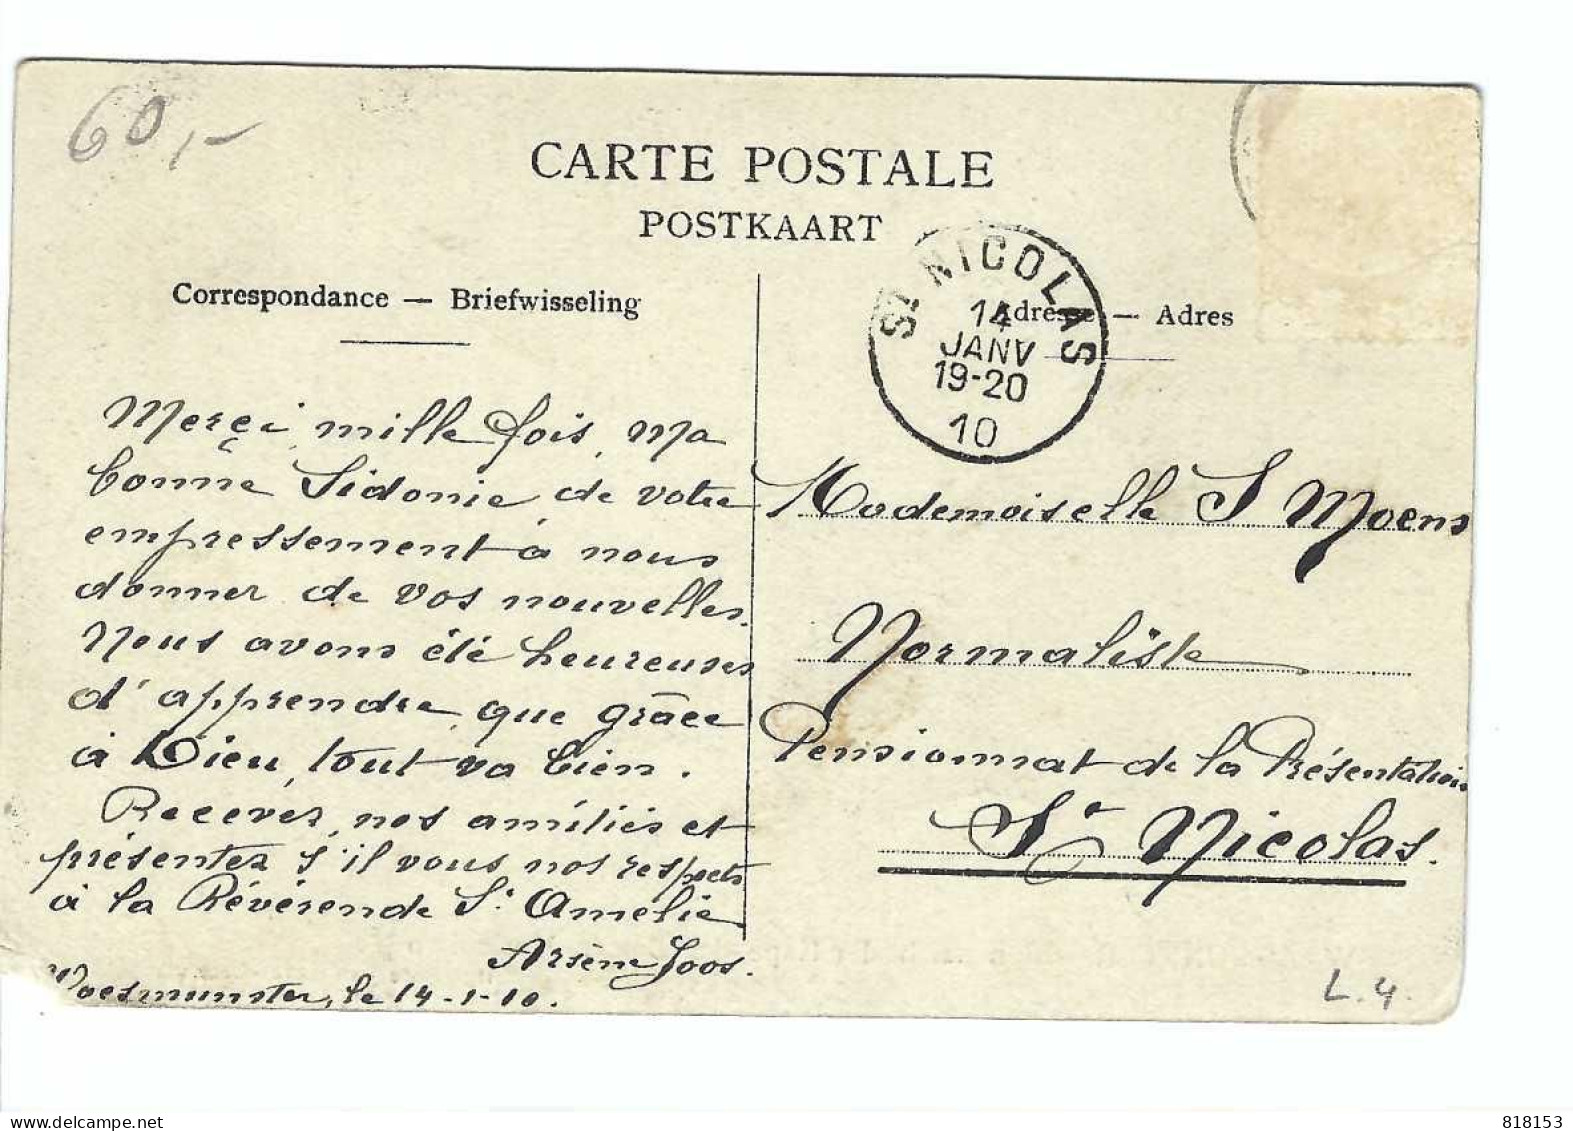 60,-
CARTE POSTALE
POSTKAART
Correspondance — Briefwisseling
Adresse — Adres
ST NICOLAS
14
JANV
19-20
10
Merçi mille fois, Ma
bonne Sidonie, de votre
empressement à nous
donner de vos nouvelles.
Nous avons été heureuses
d'apprendre que grâce
à Dieu, tout va bien.
Recevez nos amitiés et
présentez s'il vous nos respects
à la Révérende Sr. Amelie
Arsène Joos.
Waesmunster, le 14-1-10.
Mademoiselle S Moens
Normaliste
Pensionnat de la Présentation
St Nicolas.
L.4.
818153